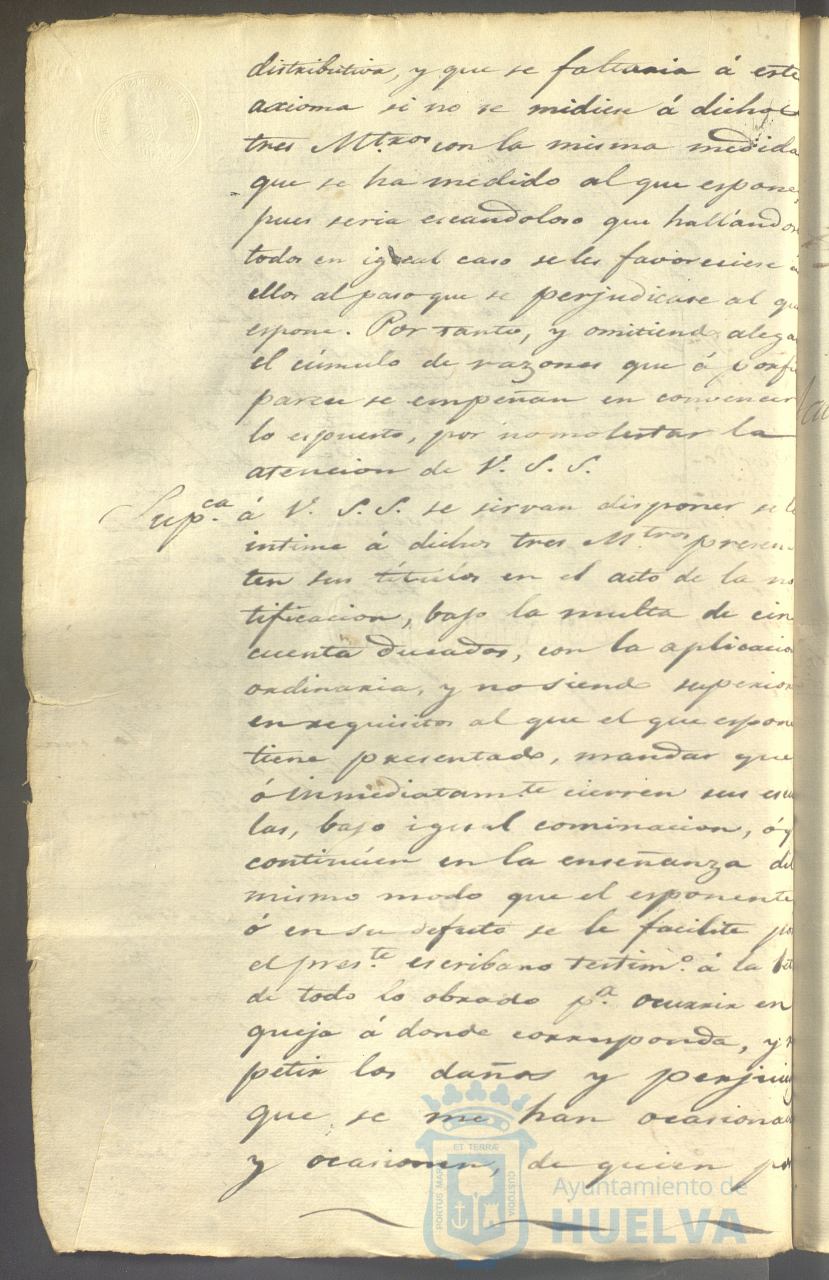 distributiva, y que se faltaria á este
axioma si no se midiese á dichos
tres Mtros con la misma medida
que se ha medido al que espone,
pues seria escandoloso que hallándose
todos en igual caso se les favoreciese á
ellos al paso que se perjudicase al qu
espone. Por tanto, y omitiendo alega
el cúmulo de razones que á porfi
parece se empeñan en convencer
lo espuesto, por no molestar la
atencion de V. S. S.
Supca. á V. S. S. se sirvan disponer se le
intime á dichos tres Mtros presen
ten sus títulos en el acto de la no
tificacion, bajo la multa de cin
cuenta ducados, con la aplicacion
ordinaria, y no siendo superior
en requisitos al que el que espone
tiene presentado, mandar que
ó inmediatamte cierren sus escu
las, bajo igual cominacion, ó q
continúen en la enseñanza del
mismo modo que el esponente
ó en su defecto se le facilite po
el preste. escribano testimo. á la let
de todo lo obrado pa. ocurrir en
queja á donde corresponda, y r
petir los daños y perjuic
que se me han ocasionad
y ocasionen, de quien p
ET TERRÆ
PORTUS MARIS
CUSTODIA
Ayuntamiento de
HUELVA